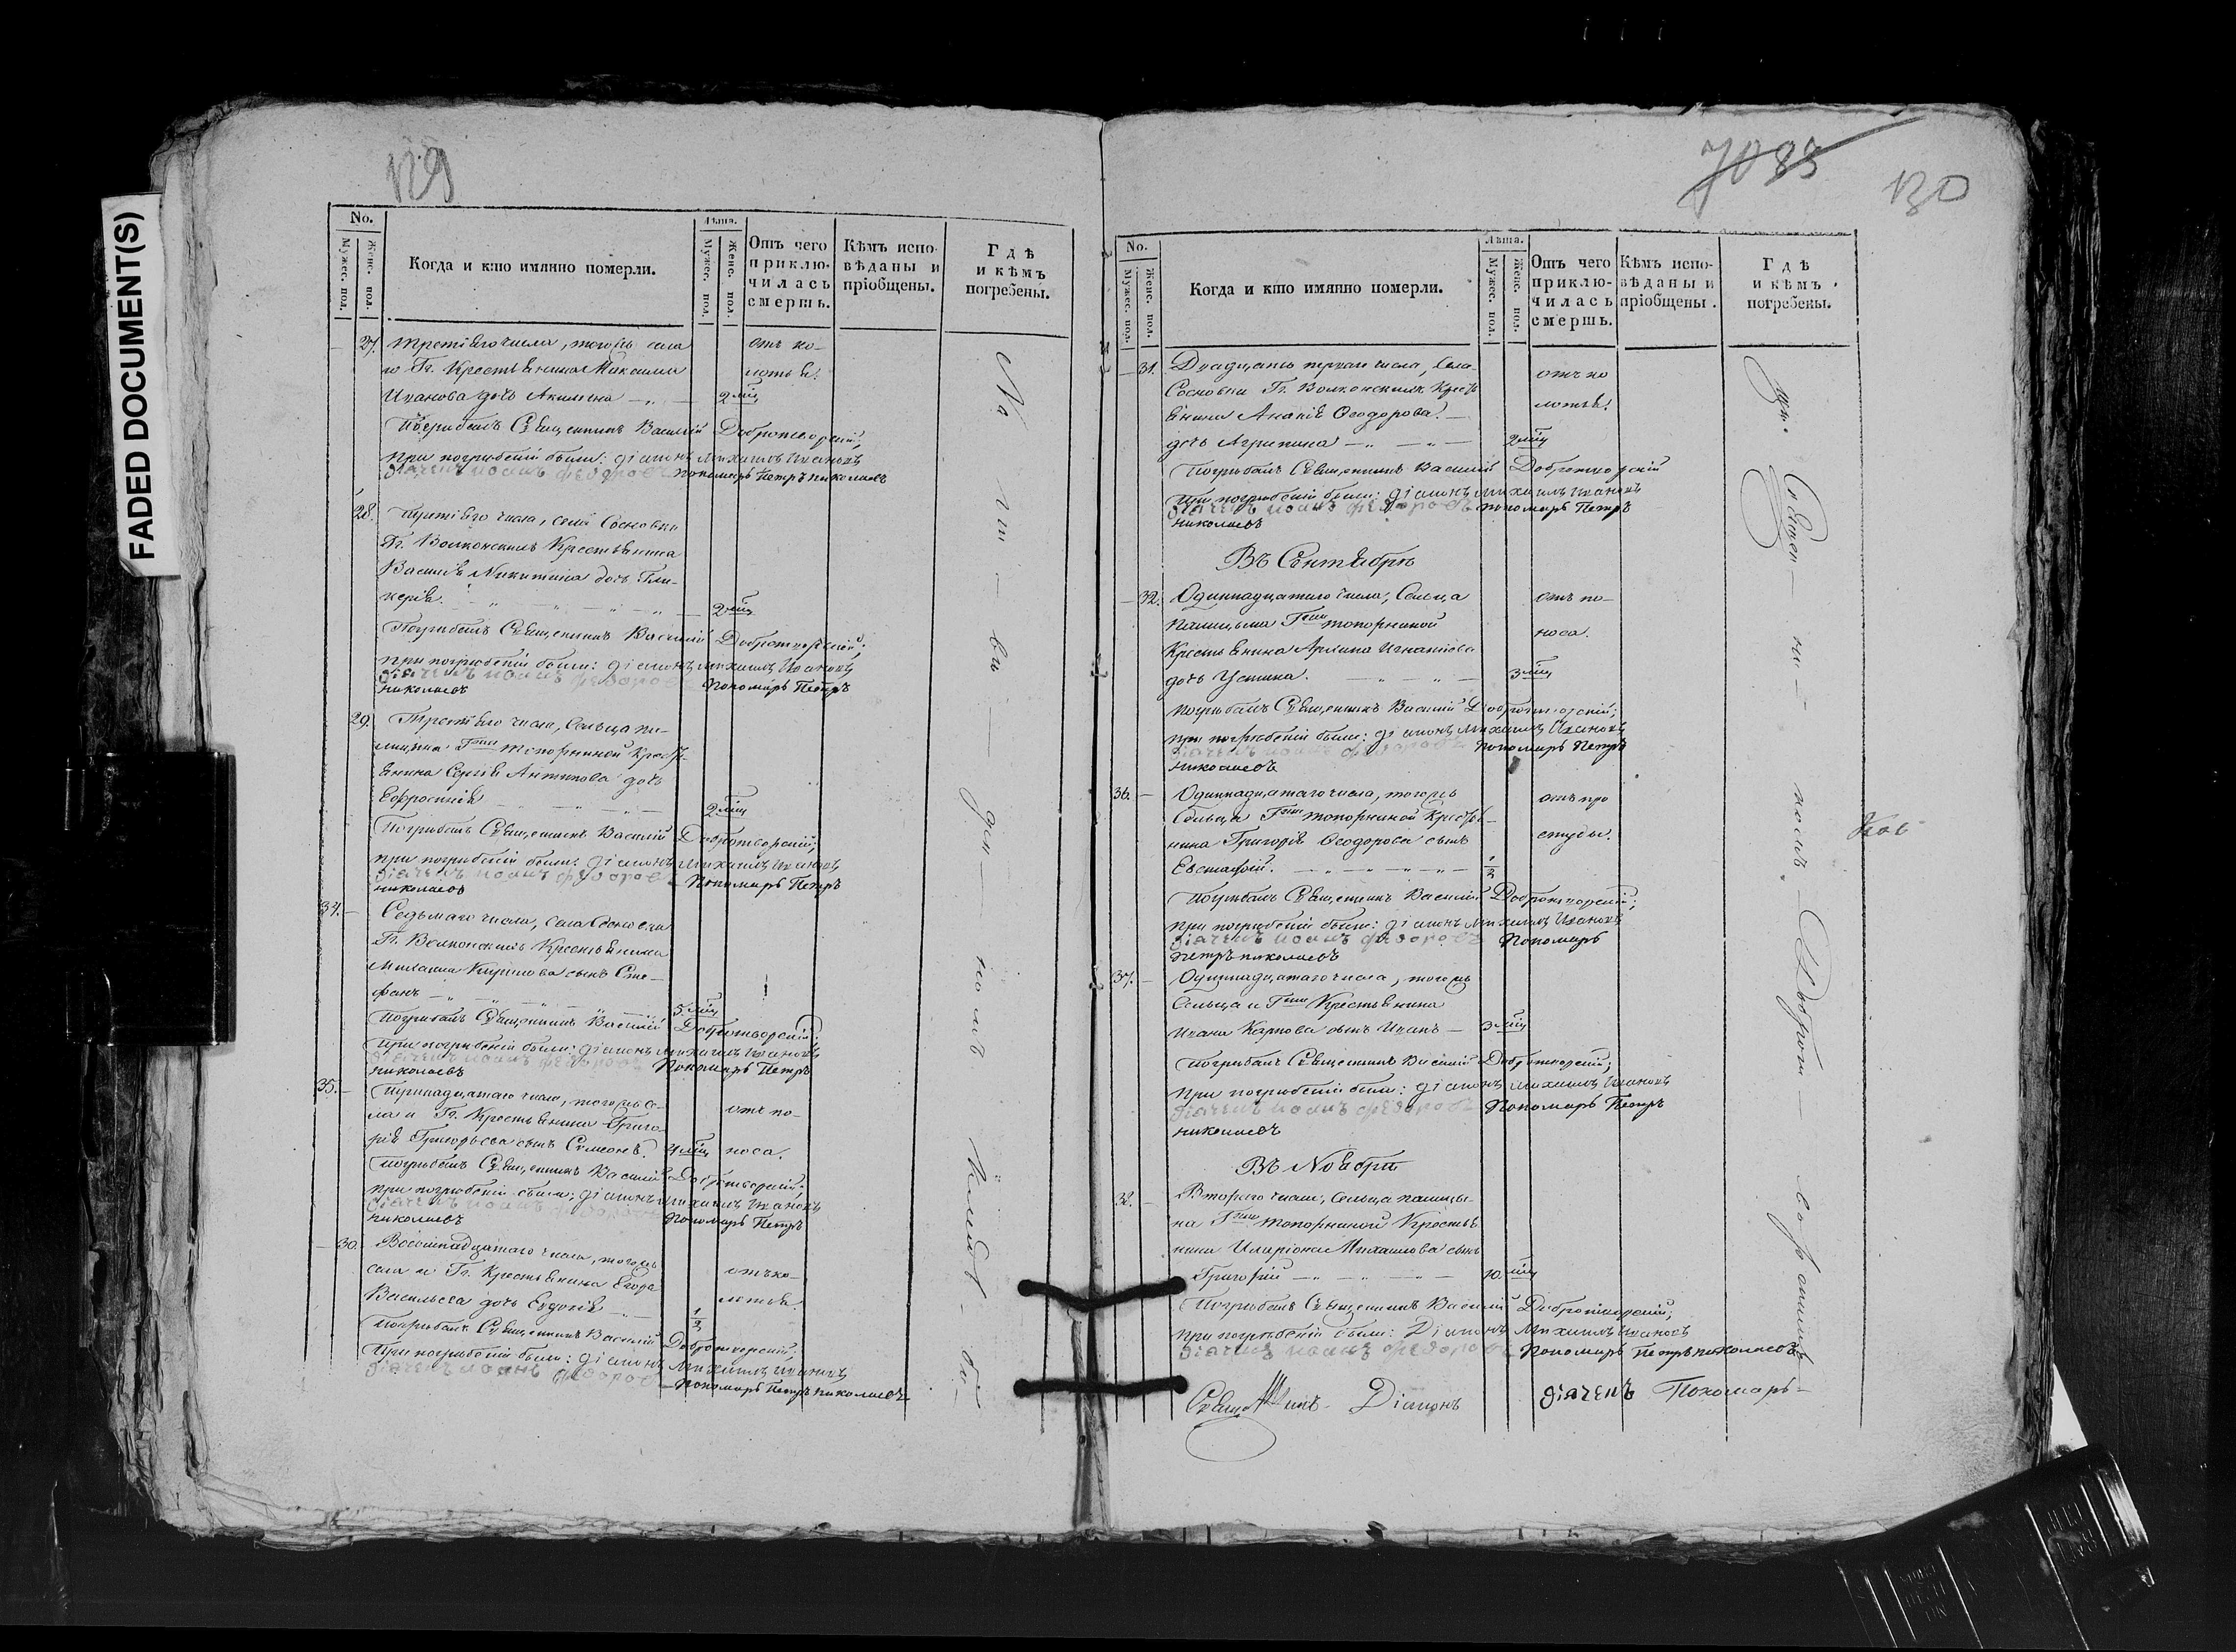 FADED DOCUMENT(S)
129
No.
Мужес. пол.
Женс. пол.
Когда и кто имянно померли.
Лѣта.
Мужес. пол.
Женс. пол.
Отъ чего приклю-
чилась смерть.
Кѣмъ испо-
вѣданы и
пріобщены.
Гдѣ
и кѣмъ
погребены.
27.
третьяго числа, тогожъ села
и Гг. Крестьянина Максима
Иванова дочь Акилина
2 мѣц
отъ ко-
лотья.
Погребалъ Священникъ Василій Добротворскій,
при погребеніи были: діаконъ Михаилъ Ивановъ
діачекъ иоанъ федоровъ пономарь Петръ николаевъ
28.
третьяго числа, села Сосновки
Гг. Волконскихъ Крестьянина
Василія Никитина дочь Гли-
керія.
2 мѣц
Погребалъ Священникъ Василій Добротворскій,
при погребеніи были: діаконъ михаилъ Ивановъ
діачекъ иоанъ федоровъ Пономарь Петръ
николаевъ
29.
Третьяго числа, сельца па-
лицына Гжи топорниной Кресть-
янина Сергія Антипова дочь
Ефросинія
2 мѣц
Погребалъ Священникъ Василій Добротворскій,
при погребеніи были: діаконъ михаилъ Ивановъ
діачекъ иоанъ федоровъ Пономарь Петръ
николаевъ
34.
Седьмаго числа, села Сосновки
Гг. Волконскихъ Крестьянина
Кирилова сынъ Сте-
фанъ
5 мѣц
Погребалъ Священникъ Василій Добротворскій;
при погребеніи были: діаконъ михаилъ Ивановъ
діачекъ иоанъ федоровъ Пономарь Петръ
николаевъ
35.
тринадцатаго числа, тогожъ се-
ла и Гг. Крестьянина Григо-
рія Григорьева сынъ Симеонъ.
4 мѣц
отъ по-
носа.
Погребалъ Священникъ Василій Добротворскій;
при погребеніи были: діаконъ михаилъ Ивановъ
діачекъ иоанъ федоровъ Пономарь Петръ
николаевъ
30.
Восемнадцатаго числа, тогожъ
села и Гг. Крестьянина Егора
Васильева дочь Евдокія
1/2
отъ ко-
лотья.
Погребалъ Священникъ Василій Добротворскій;
При погребеніи были: діаконъ Михаилъ Ивановъ
діачекъ иоанъ федоровъ Пономарь Петръ николаевъ
7083
130
No.
Мужес. пол.
Женс. пол.
Когда и кто имянно померли.
Лѣта.
Мужес. пол.
Женс. пол.
Отъ чего приклю-
чилась смерть.
Кѣмъ испо-
вѣданы и
пріобщены.
Гдѣ
и кѣмъ
погребены.
31.
Двадцать числа, села
Сосновки Гг. Волконскихъ Кресть
янина Ананія Ѳеодорова
дочь Агрипина
2 мѣц
отъ ко
лотья.
Погребалъ Священникъ Василій Добротворскій
При погребеніи были: діаконъ михаилъ Ивановъ
діачекъ иоанъ федоровъ пономарь Петръ
николаевъ
Въ Сентябрѣ
32.
Одиннадцатаго числа, Сельца
Палицына Гжи топорниной
Крестьянина Игнатіева
дочь Устина.
3 мѣц
отъ по-
носа.
Погребалъ Священникъ Василій Добротворскій;
при погребеніи были: діаконъ михаилъ Ивановъ
діачекъ иоанъ федоровъ Пономарь Петръ
николаевъ
36.
Одиннадцатаго числа, тогожъ
Сельца Гжи топорниной Кресть-
нина Григорія Ѳеодорова сынъ
Евстафій.
1/2
отъ про
студы.
Погребалъ Священникъ Василій Добротворскій;
при погребеніи были: діаконъ михаилъ Ивановъ
діачекъ иоанъ федоровъ Пономарь
Петръ николаевъ
37.
Одиннадцатаго числа, тогожъ
Сельца и Гжи Крестьянина
Ивана Карпова сынъ Иванъ
3 мѣц
Погребалъ Священникъ Василій Добротворскій;
при погребеніи были: діаконъ михаилъ Ивановъ
діачекъ иоанъ федоровъ Пономарь Петръ
николаевъ
Въ Ноябрѣ
Втораго числа, Сельца палицы-
на Гжи топорниной Крестья
нина Иларіона Михаилова сынъ
Григорій
10 мѣц
Погребалъ Священникъ Василій Добротворскій;
при погребеніи были: Діаконъ Михаилъ Ивановъ
діачекъ иоанъ федоровъ Пономарь Петръ николаевъ
Священникъ Діаконъ діачекъ Пономарь